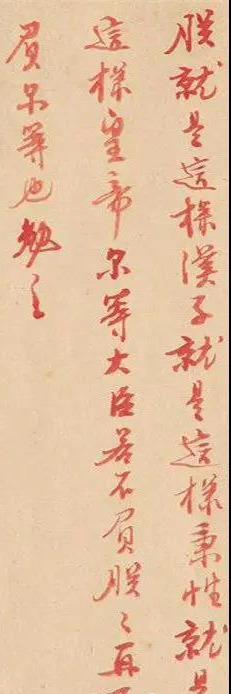 朕就是這樣漢子就是這樣秉性就是
這樣皇帝尔等大臣若不負朕〻再
負尔等也勉之